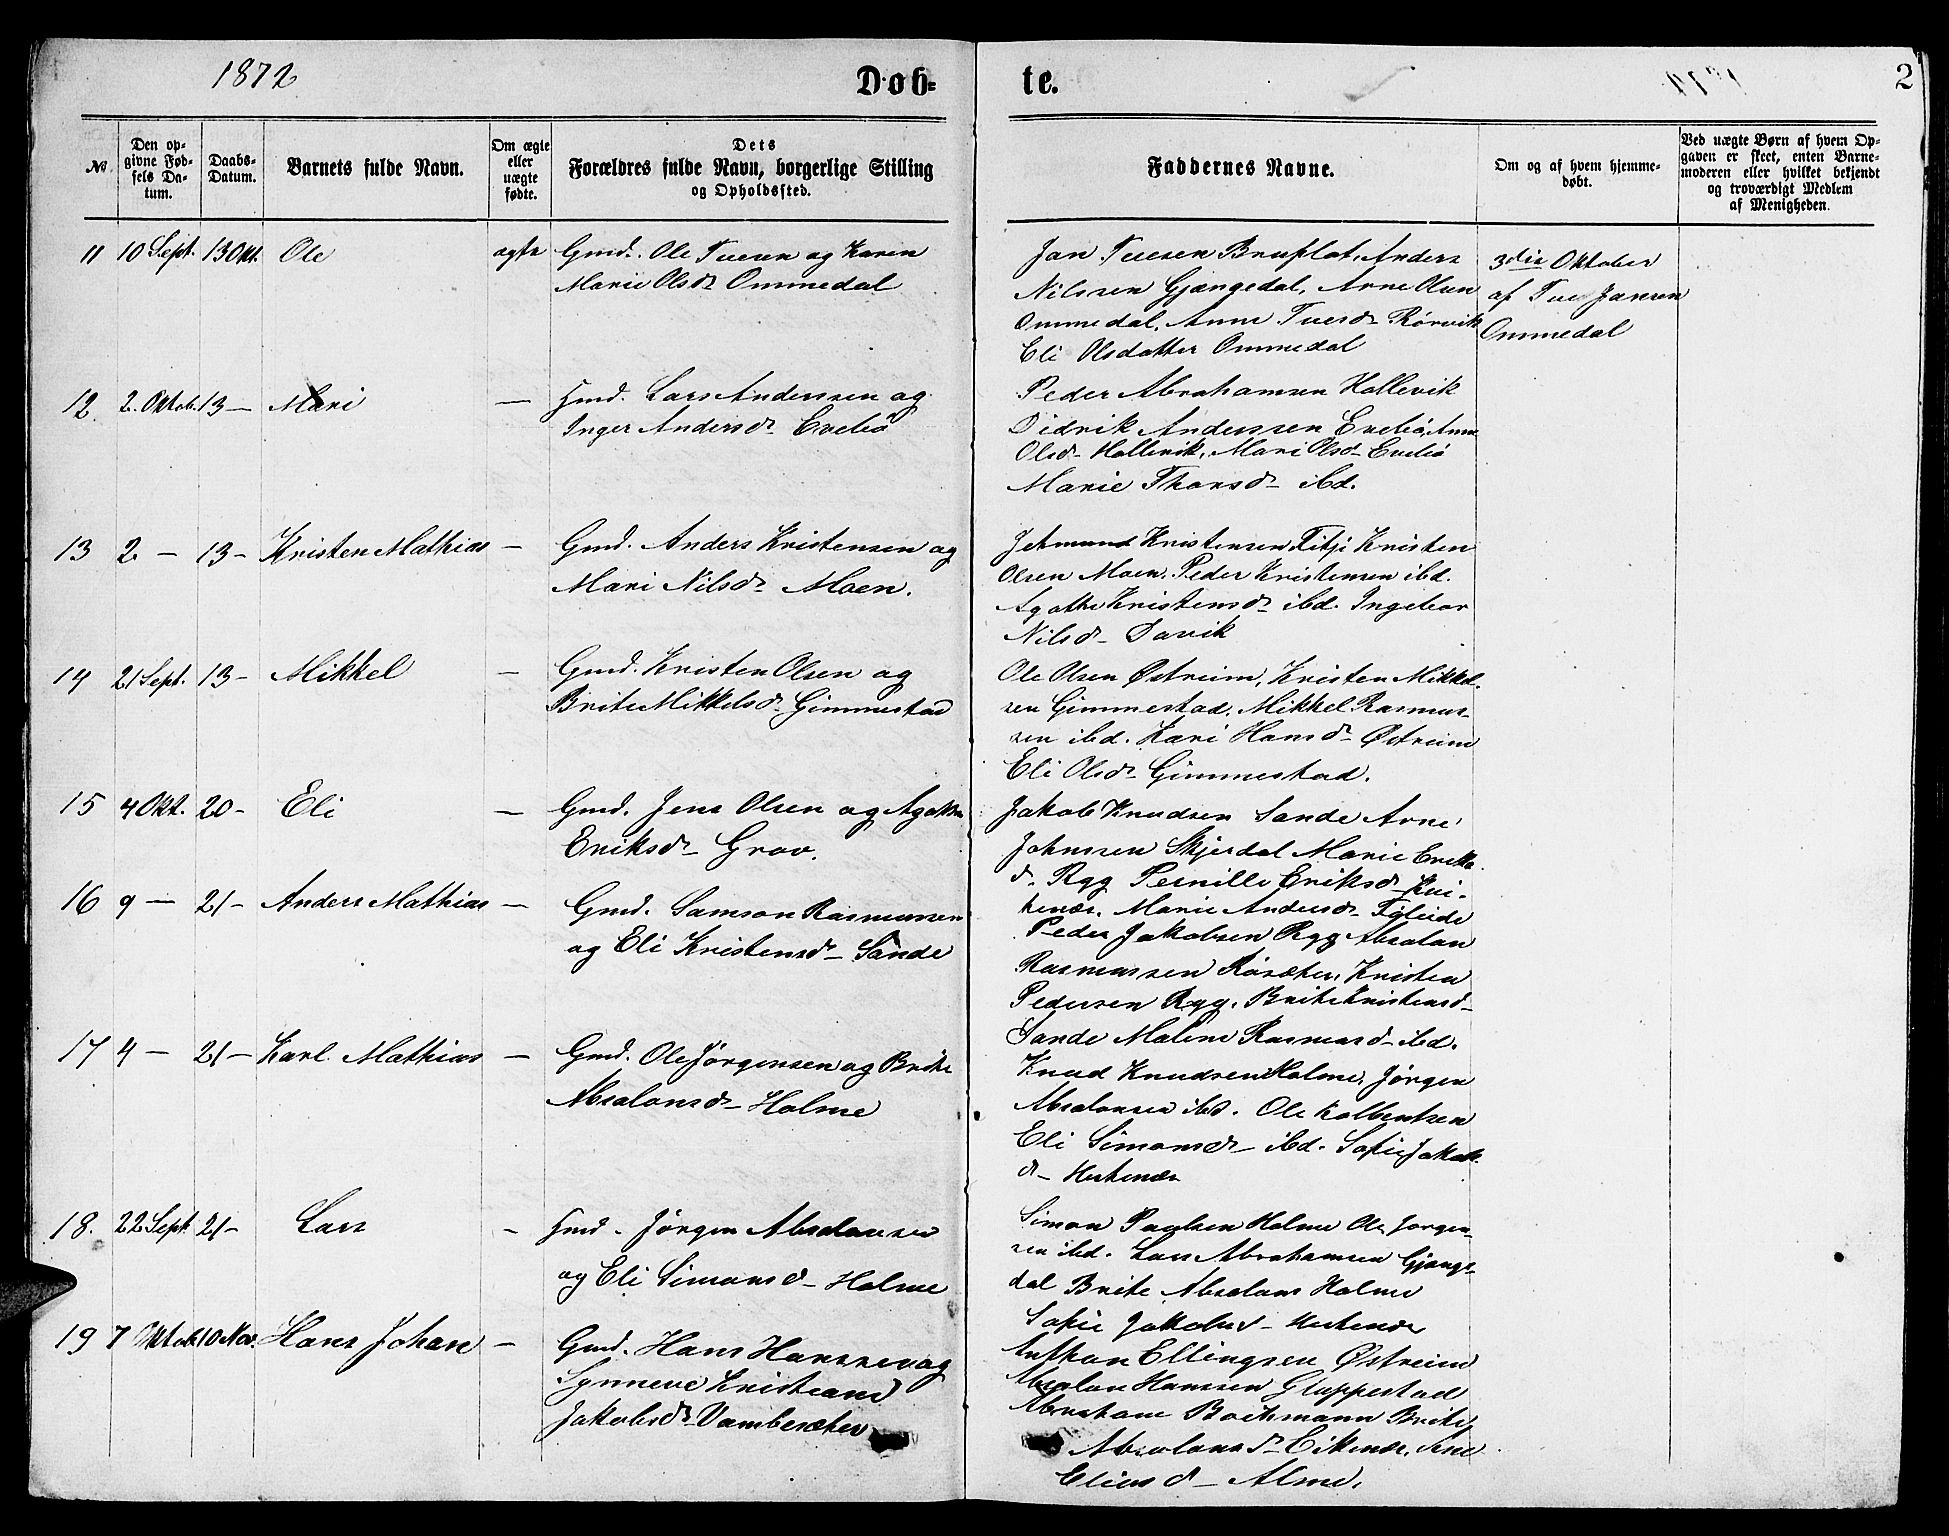 1872
Døb-
te.
2
№
Den op-
givne Fød-
sels Da-
tum.
Daabs-
Datum.
Barnets fulde Navn.
Om ægte
eller
uægte
fødte.
Dets
Forældres fulde Navn, borgerlige Stilling
og Opholdssted.
Faddernes Navne.
Om og af hvem hjemme-
døbt.
Ved uægte Børn af hvem Op-
gaven er skeet, enten Barne-
moderen eller hvilket bekjendt
og troværdigt Medlem
af Menigheden.
11 10 Sept. 13 Okt. Ole ægte
Gmd. Ole Tuesen og Karen
Marie Olsd. Ommedal
Jan Tuesen Bruflot, Anders
Nilssen Gjengedal, Arne Olsen
Ommedal, Anne Tuesd. Rørvik
Eli Olsdatter Ommedal
3die Oktober
af Tue Jansen
Ommedal
12. 2. Oktob. 13 — Mari —
Hmd. Lars Anderssen og
Inger Andersd. Evebø
Peder Abrahamsen Hollevik
Didrik Anderssen Evebø, Anne
Olsd. Hollevik, Mari Olsd. Evebø
Marie Thorsd. ibd.
13 2 — 13 — Kristen Mathias —
Gmd. Anders Kristensen og
Mari Nilsd. Moen.
Jetmund Kristensen Fitje Kristen
Olsen Moen. Peder Kristensen ibd.
Agathe Kristensd. ibd. Ingebor
Nilsd. Davik
14 21 Sept. 13 — Mikkel —
Gmd. Kristen Olsen og
Brite Mikkelsd. Gimmestad
Ole Olsen Østreim, Kristen Mikkel-
sen Gimmestad. Mikkel Rasmus-
sen ibd. Kari Hansd. Østreim
Eli Olsd. Gimmestad.
15 4 Okt. 20 — Eli —
Gmd. Jens Olsen og Agathe
Eriksd. Grov.
Jakob Knudsen Sande Arne
Johnssen Skjerdal Marie Eriks
d. Ryg Pernille Eriksd.
Marie Andersd.
16 9 — 21 — Anders Mathias —
Gmd. Samson Rasmussen
og Eli Kristensd. Sande
Peder Jakobsen Ryg Absalon
Rasmussen Røsæter, Kristen
Pedersen Ryg, Brite Kristensd.
Sande Malene Rasmusd. ibd.
17 4 — 21 — Karl Mathias —
Gmd. Ole Jørgensen og Brite
Absalonsd. Holme
Knud Knudsen Holme, Jørgen
Absalonsen ibd. Ole Kolbentsen
Eli Simonsd. ibd. Sofie Jakob
d. Hestenes
18. 22 Sept. 21 — Lars —
Hmd. Jørgen Absalonsen
og Eli Simonsd. Holme
Simon Paulsen Holme Ole Jørgen-
sen ibd. Lars Abrahamsen Gjenge-
dal Brite Absalons Holme
Sofie Jakobsd. Hestenes
19 7 Oktob. 10 Nov. Hans Johan —
Gmd. Hans Hanssen og
Synneve Kristiane
Jakobsd. Vambesæter
Anthon Ellingsen Østreim
Absalon Hanssen Gloppestad
Abraham Boetmann Brite
Absalonsd. Eikenæs, Sine
Eliasd. Alme.